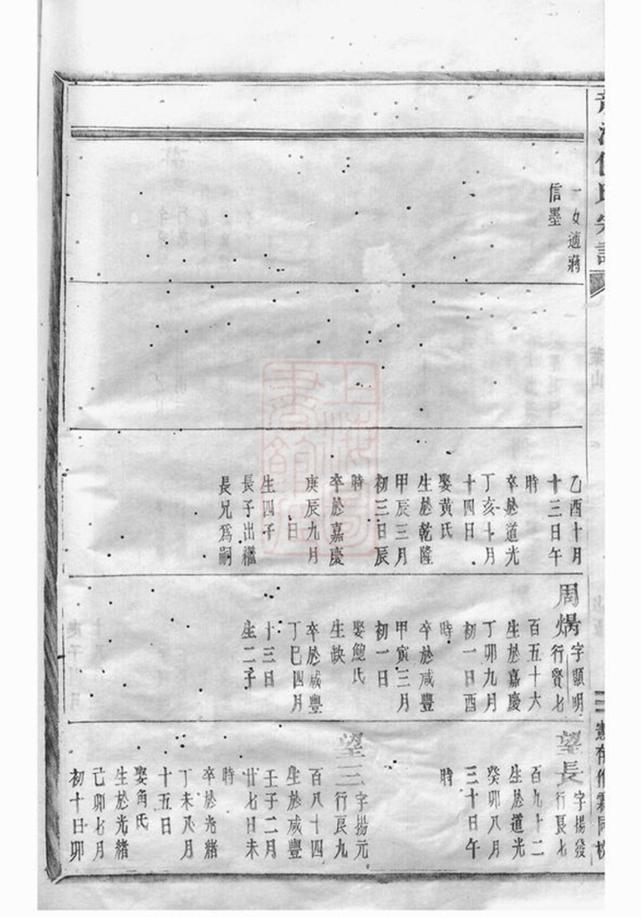 氏宗譜
一女適蔣
信墨
乙酉十月
十三日午
時
卒於道光
丁亥十月
十四日
娶黃氏
生於乾隆
甲辰三月
初三日辰
時
卒於嘉慶
庚辰九月
日
生四子
長子出繼
長兄爲嗣
周
字顯明
行賢七
百五十六
生於嘉慶
丁卯九月
初一日酉
時
卒於咸豐
甲寅三月
初一日
娶鮑氏
生缺
卒於咸豐
丁巳四月
十三日
生二子
望長
字揚發
行長七
百九十二
生於道光
癸卯八月
三十日午
時
望三
字揚元
行長九
百八十四
生於咸豐
壬子二月
廿七日未
時
卒於光緒
丁未八月
十五日
娶角氏
生於光緒
己卯七月
初十日卯